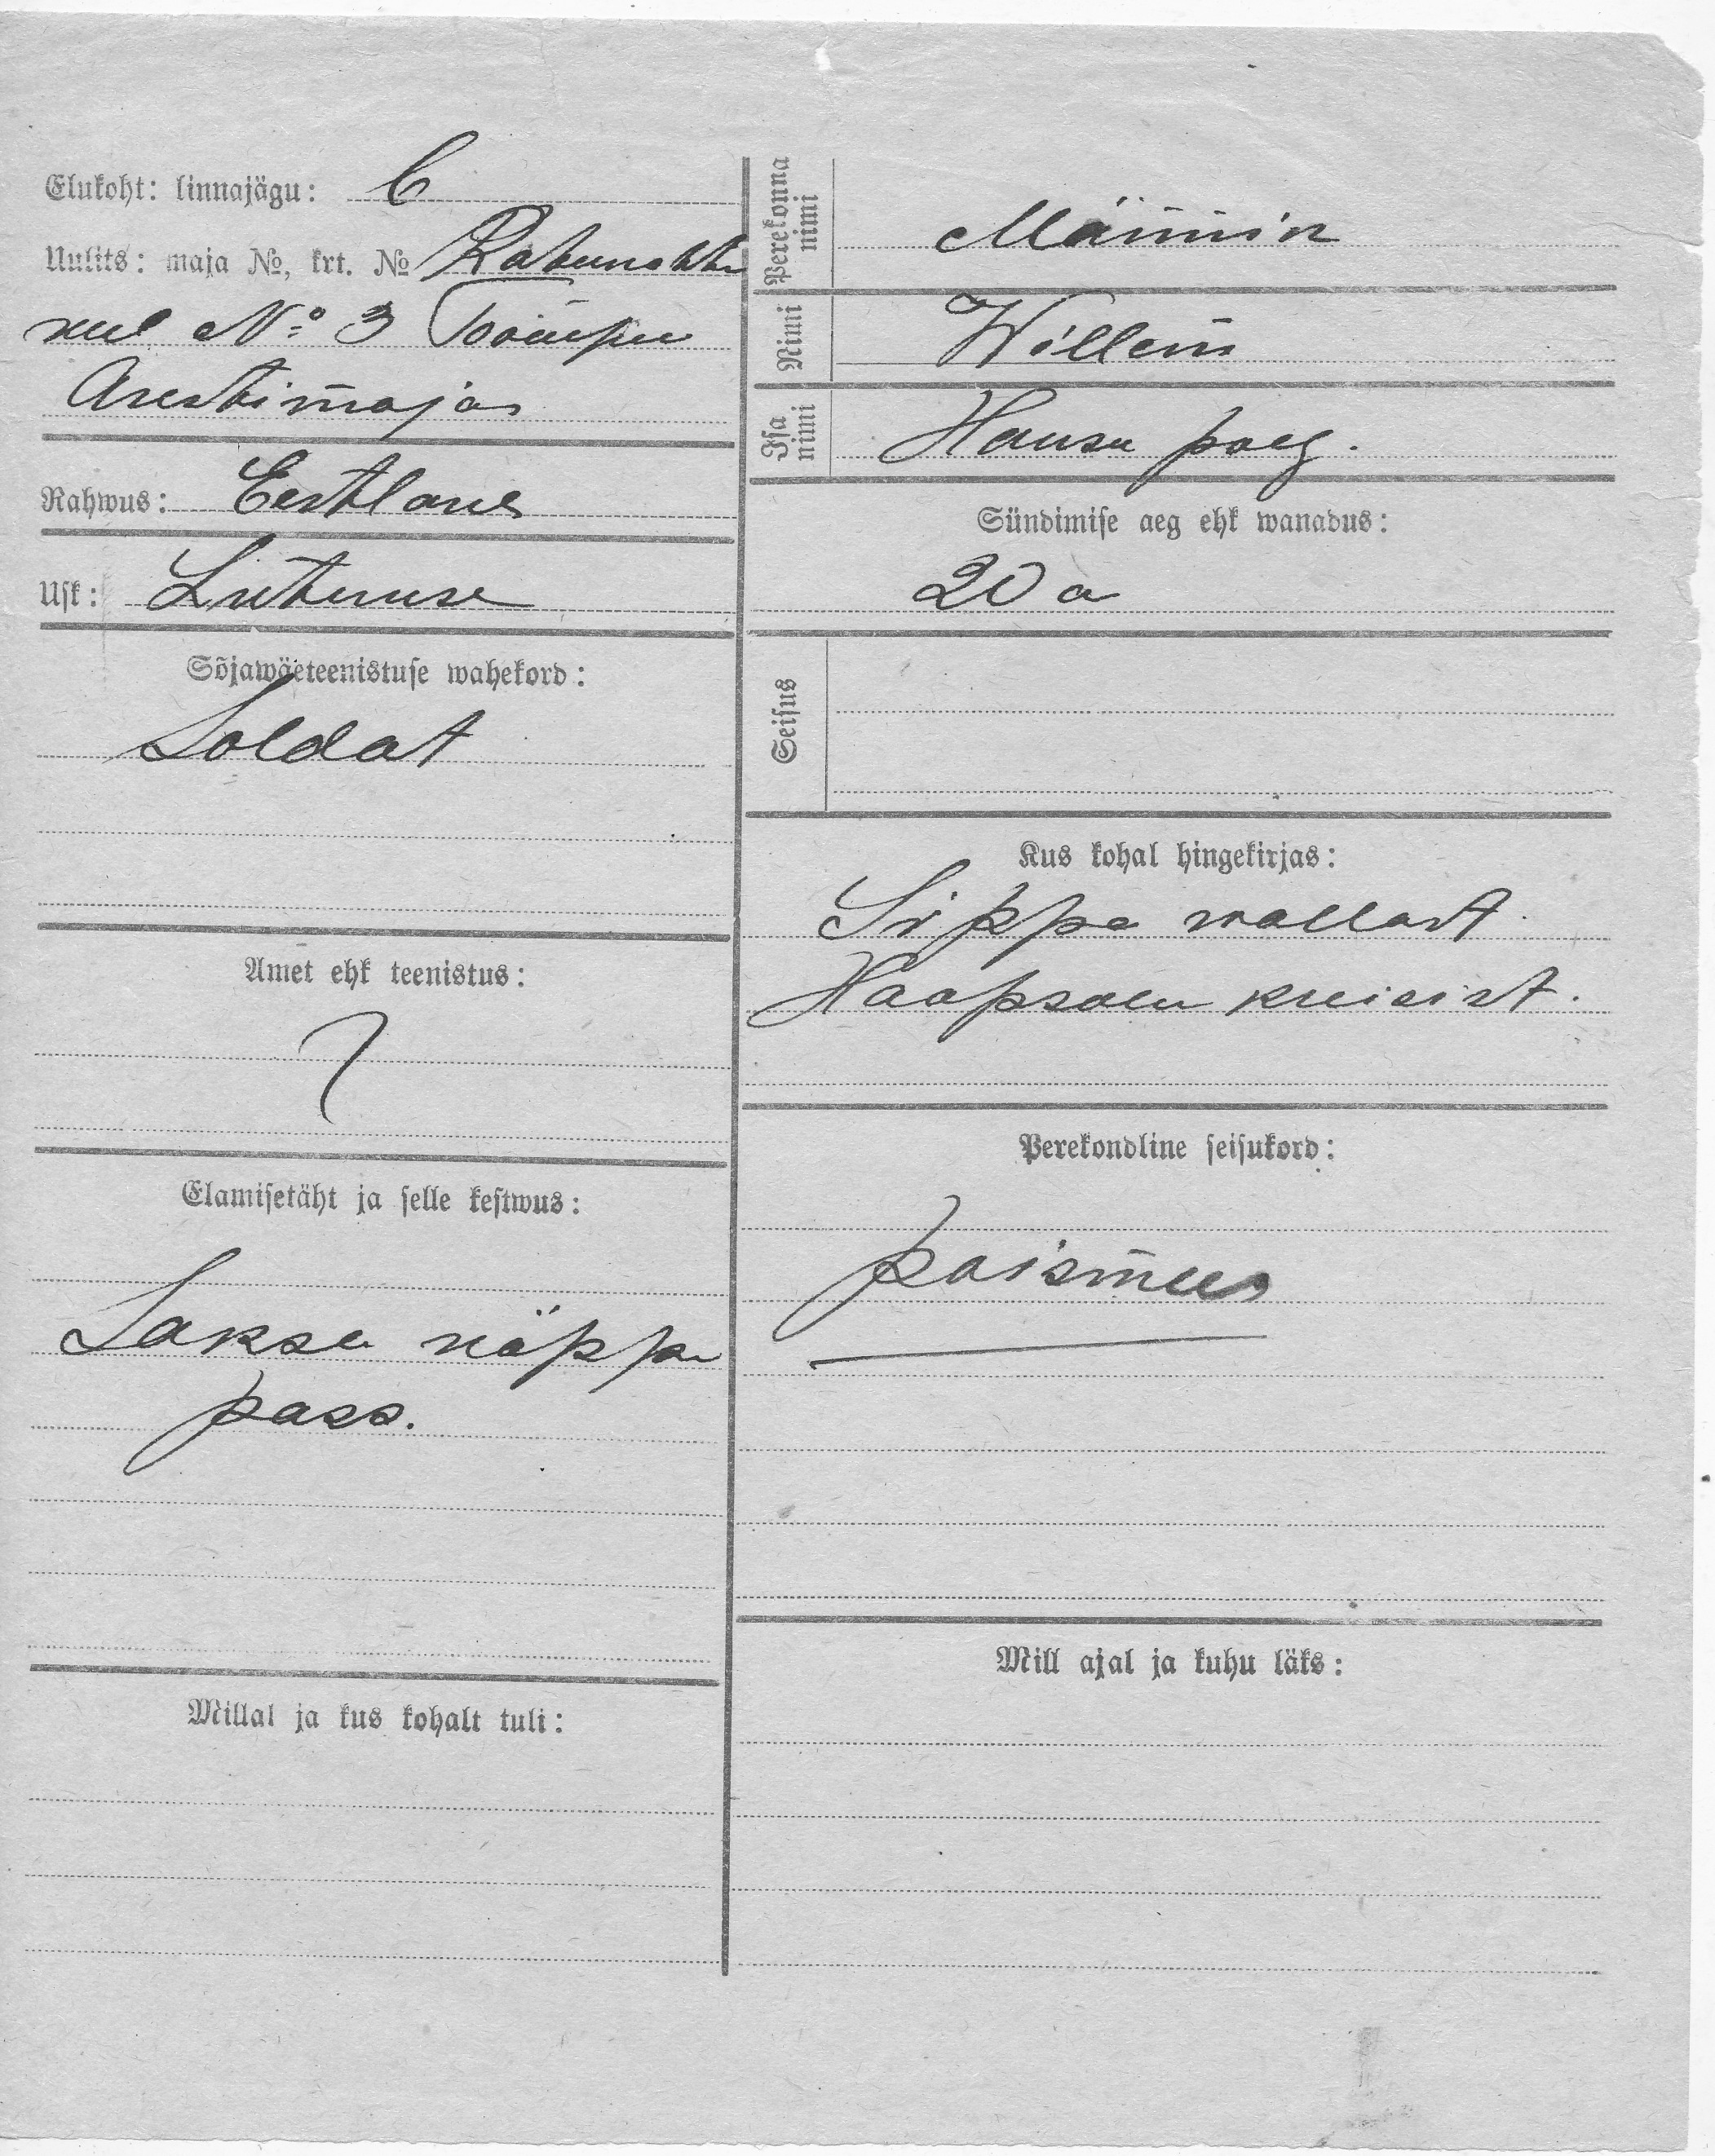 Elukoht: linnajägu: C
Uulits: maja No, krt. No
No 3 Toompea
Arestimajas
Rahwus: Eestlane
Usk: Luteruse
Sõjawäeteenistuse wahekord:
Soldat
Amet ehk teenistus:
Elamisetäht ja selle kestwus:
Saksa näppu
pass.
Millal ja kus kohalt tuli:
Perekonna nimi
Nimi Willem
Isa nimi Hansu poeg.
Sündimise aeg ehk wanadus:
20 a
Seisus
Kus kohal hingekirjas:
Sippa wallast
Haapsalu kreisist.
Perekondline seisukord:
poismees
Mill ajal ja kuhu läks: